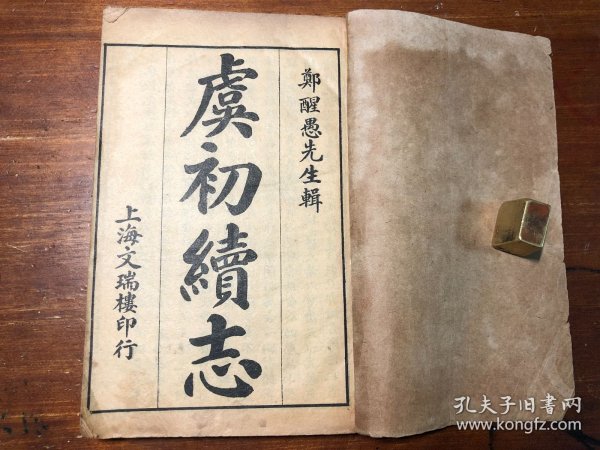 鄭醒愚先生輯
虞初續志
上海文瑞樓印行
孔夫子旧书网
www.kongfz.com